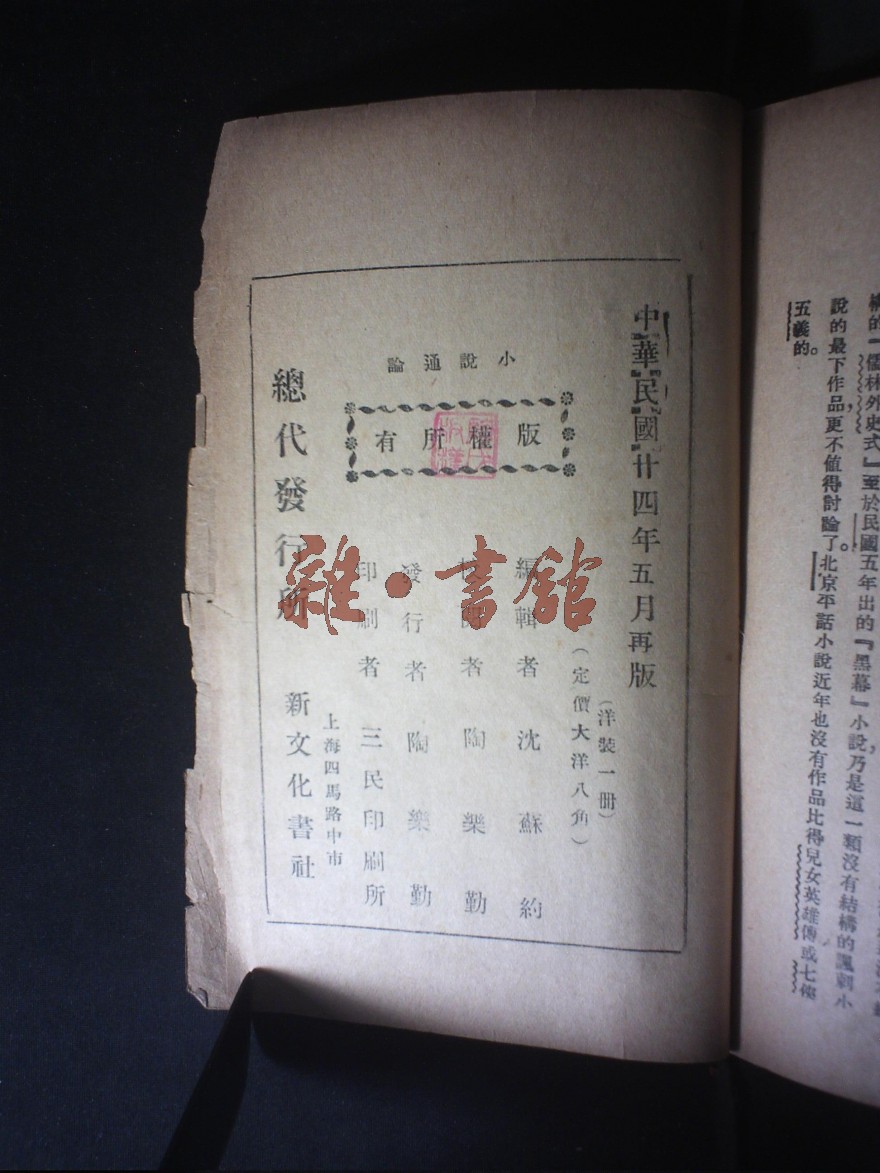 構的「儒林外史式」至於民國五年出的『黑幕』小說,乃是這一類沒有結構的諷刺小
說的最下作品,更不值得討論了。北京平話小說近年也沒有作品比得兒女英雄傳或七俠
五義的。
中華民國廿四年五月再版
(洋裝一冊)
(定價大洋八角)
小說通論
版權所有
編輯者沈蘇約
校閱者陶樂勤
發行者陶樂勤
印刷者三民印刷所
上海四馬路中市
總代發行所新文化書社
雜·書館